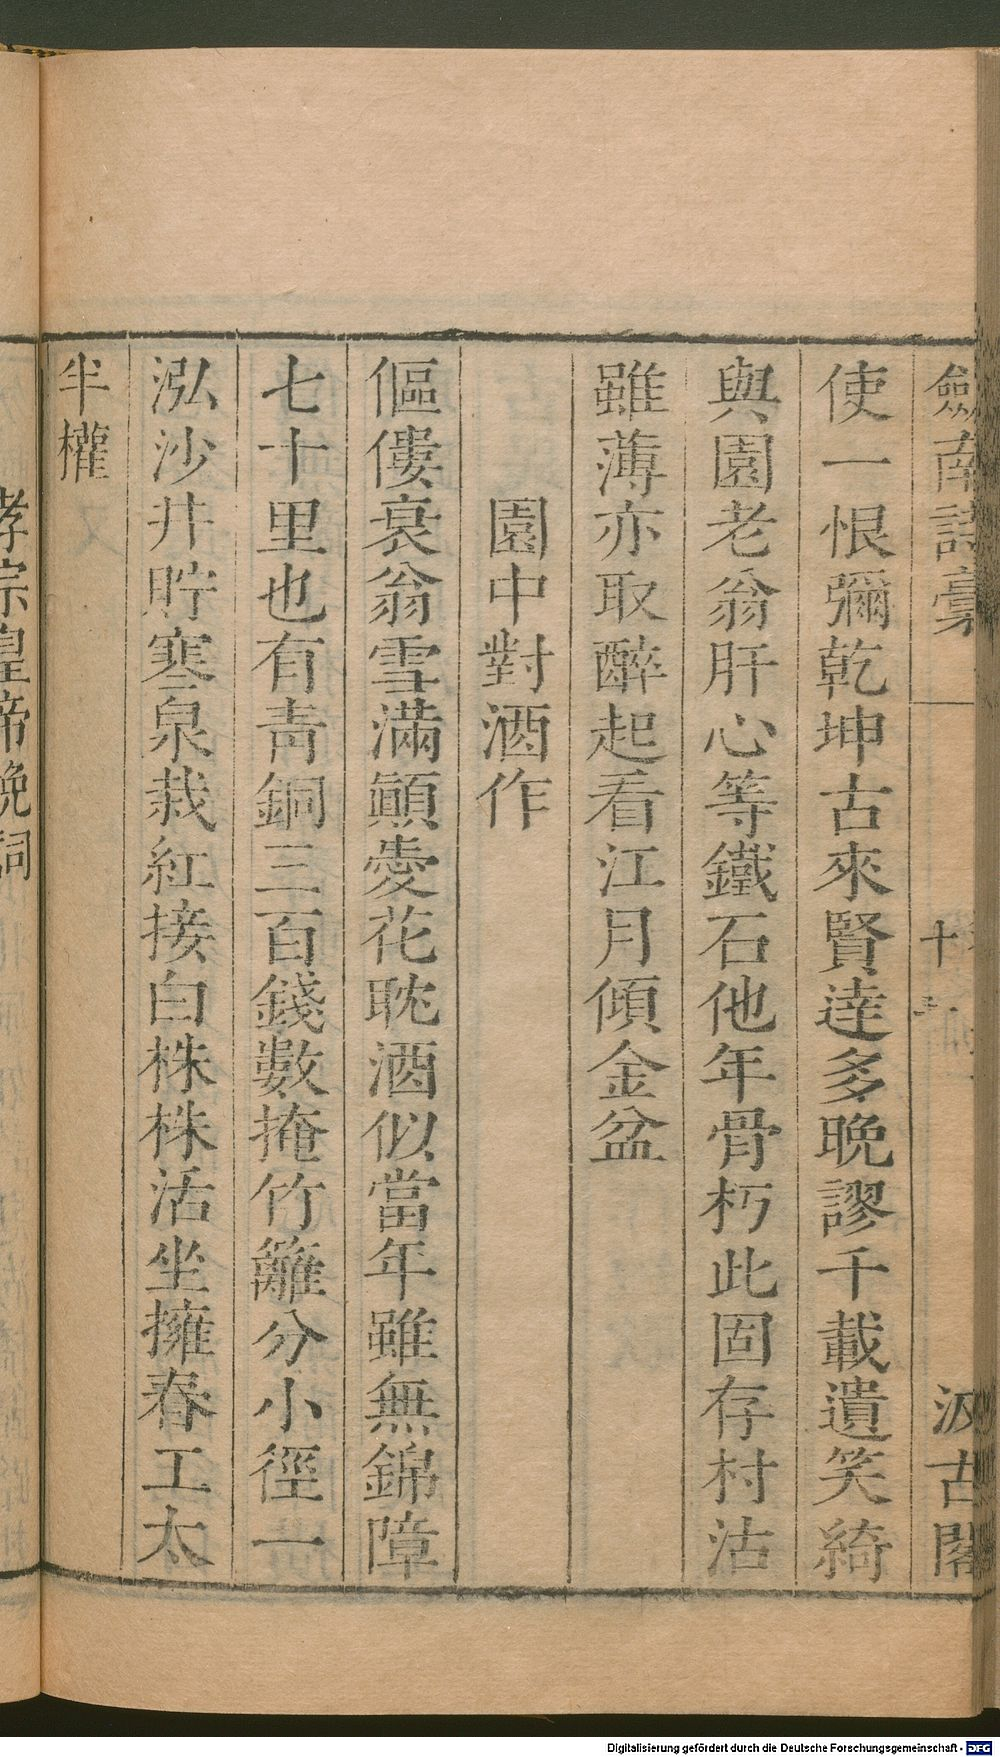 劍南詩稾
十
汲古閣
使一恨彌乾坤古來賢達多晚謬千載遺笑綺
與園老翁肝心等鐵石他年骨朽此固存村沽
雖薄亦取醉起看江月傾金盆
園中對酒作
傴僂衰翁雪滿顚愛花耽酒似當年雖無錦障
七十里也有靑銅三百錢數掩竹籬分小徑一
泓沙井貯寒泉栽紅接白株株活坐擁春工太
半權
孝宗皇帝晚詞
Digitalisierung gefördert durch die Deutsche Forschungsgemeinschaft - DFG